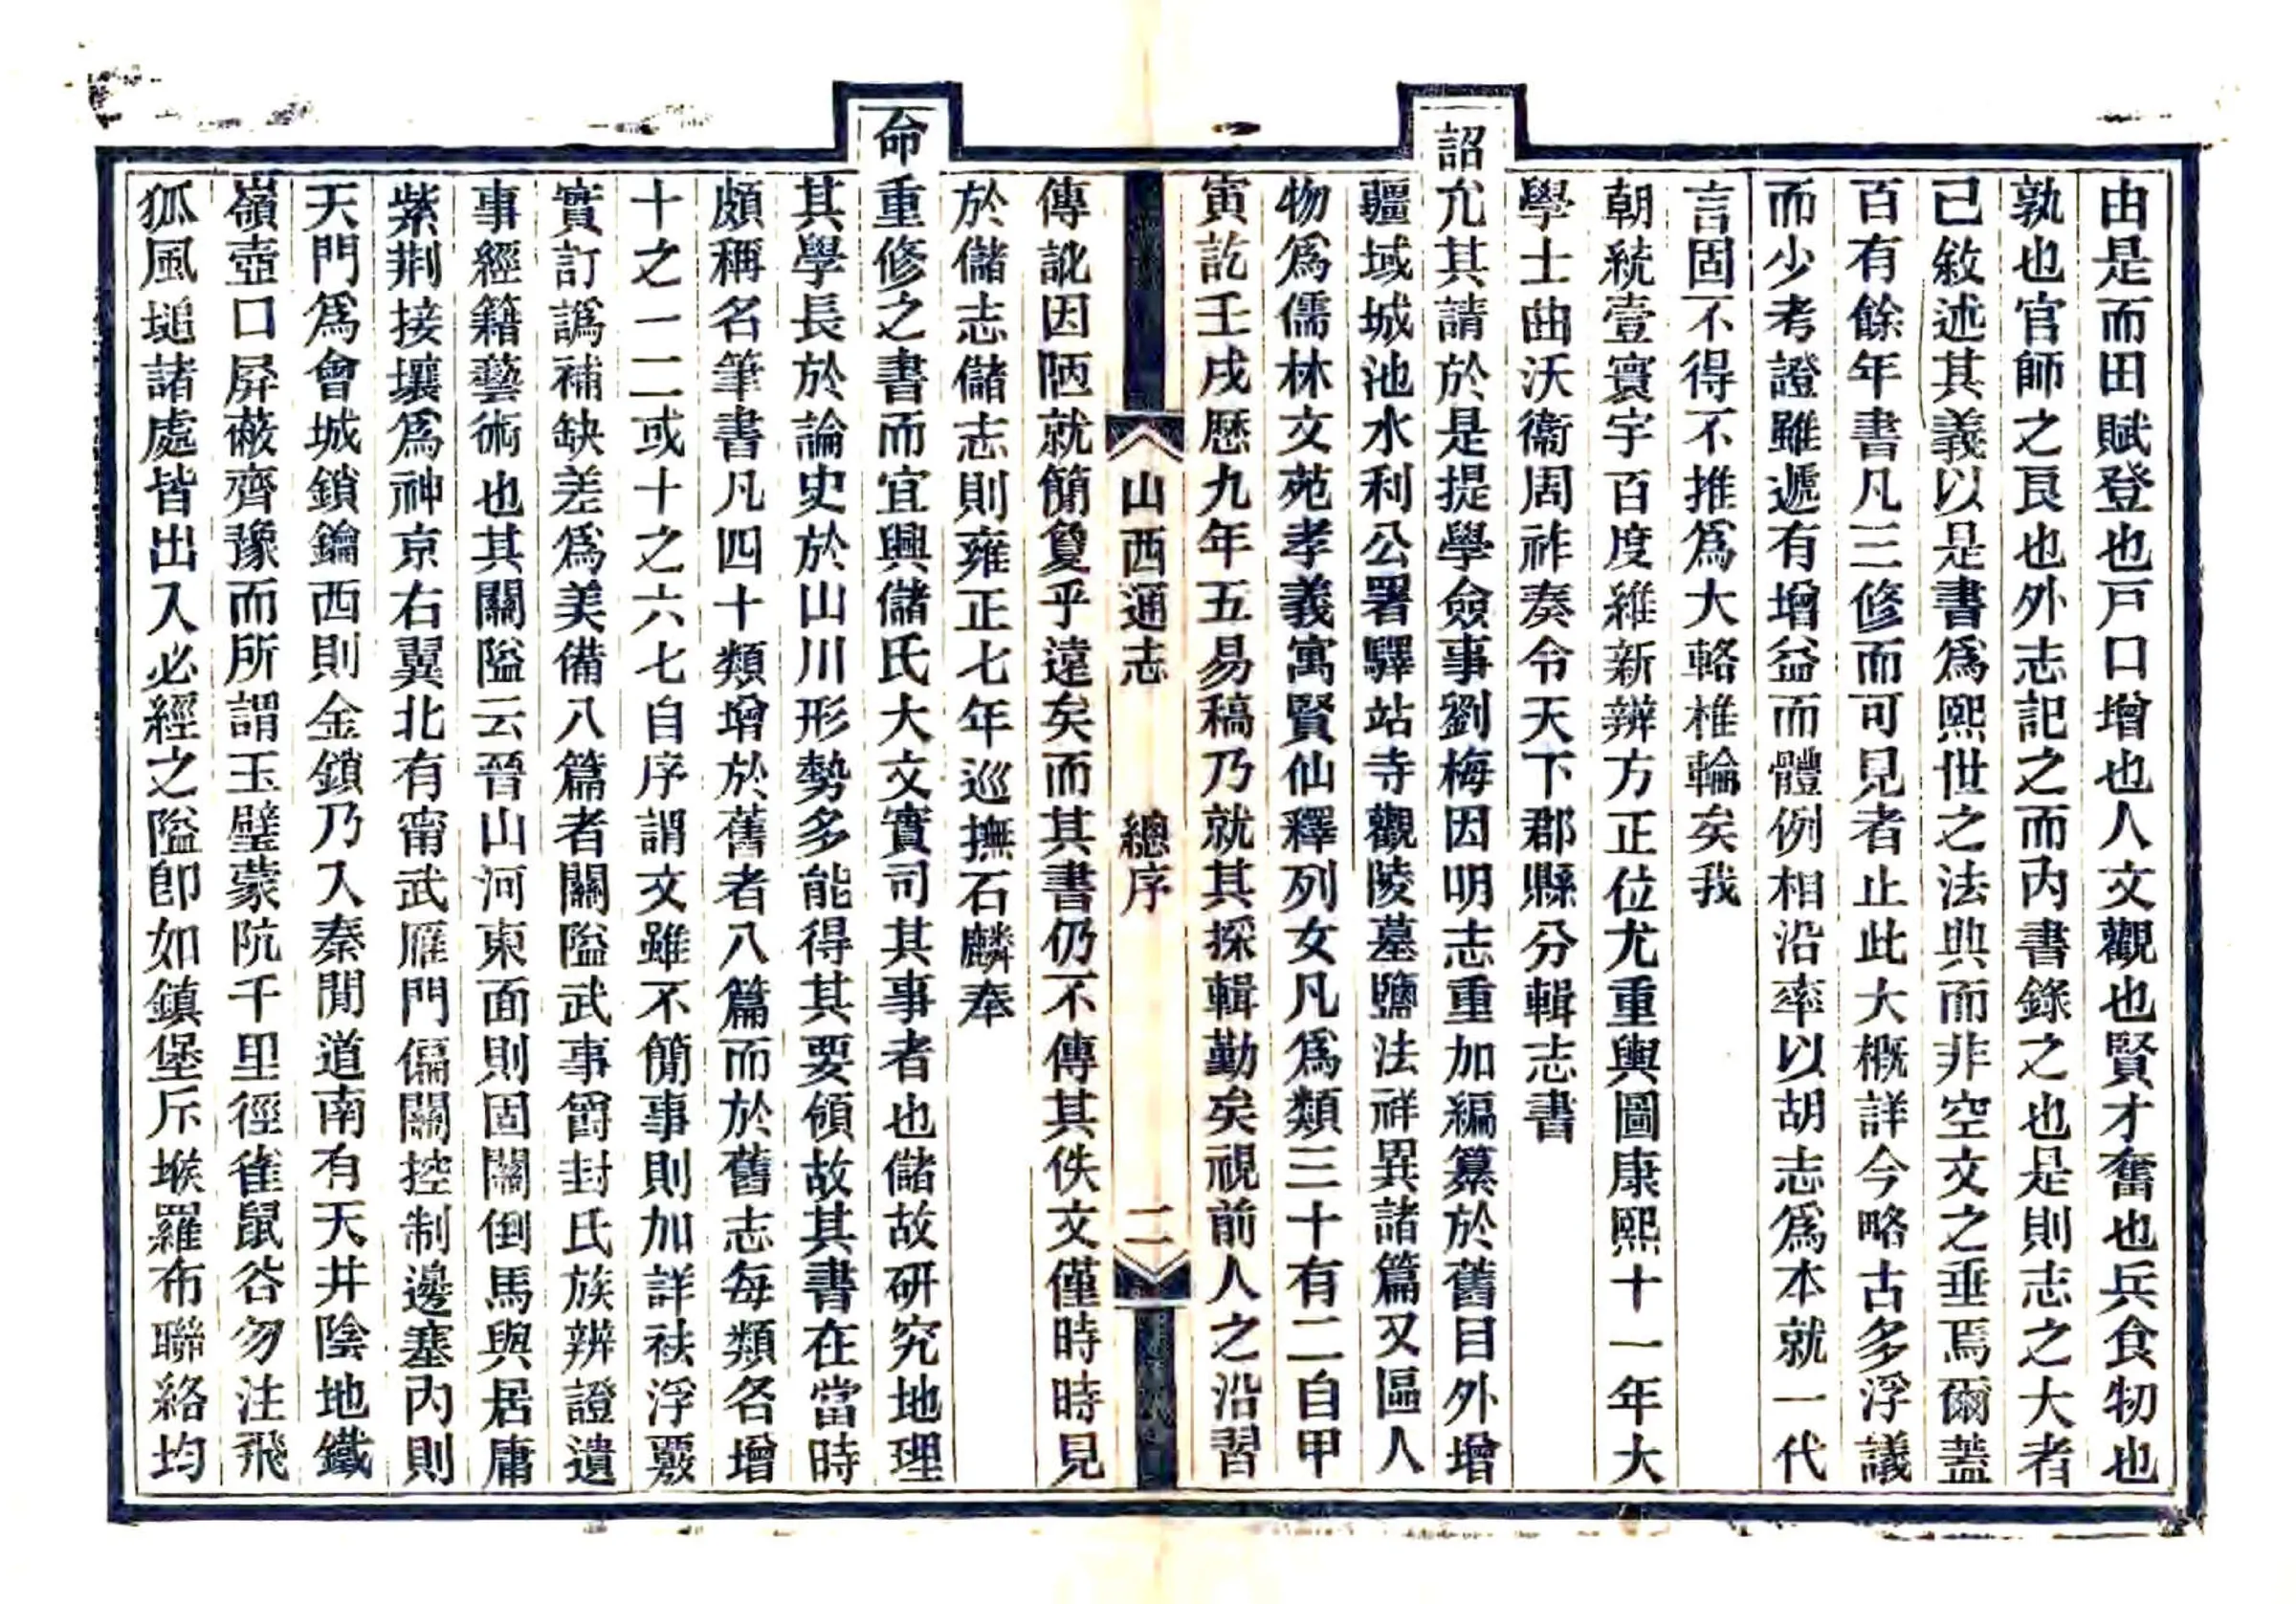 由是而田賦登也戸口增也人文觀也賢才奮也兵食物也
孰也官師之良也外志記之而內書錄之也是則志之大者
已敘述其義以是書爲熙世之法典而非空文之垂焉爾蓋
百有餘年書凡三修而可見者止此大概詳今略古多浮議
而少考證雖遞有增益而體例相沿率以胡志爲本就一代
言固不得不推爲大輅椎輪矣我
朝統壹寰宇百度維新辨方正位尤重輿圖康熙十一年大
學士曲沃衞周祚奏令天下郡縣分輯志書
詔允其請於是提學僉事劉梅因明志重加編纂於舊目外增
疆域城池水利公署驛站寺觀陵墓鹽法祥異諸篇又區人
物爲儒林文苑孝義寓賢仙釋列女凡爲類三十有二自甲
寅訖壬戌歷九年五易稿乃就其採輯勤矣視前人之沿習
山西通志 總序 二
傳訛因陋就簡敻乎遠矣而其書仍不傳其佚文僅時時見
於儲志儲志則雍正七年巡撫石麟奉
命重修之書而宜興儲氏大文實司其事者也儲故研究地理
其學長於論史於山川形勢多能得其要領故其書在當時
頗稱名筆書凡四十類增於舊者八篇而於舊志每類各增
十之一二或十之六七自序謂文雖不簡事則加詳祛浮覈
實訂譌補缺差爲美備八篇者關隘武事爵封氏族辨證遺
事經籍藝術也其關隘云晉山河東面則固關倒馬與居庸
紫荆接壤爲神京右翼北有甯武雁門偏關控制邊塞內則
天門爲會城鎖鑰西則金鎖乃入秦閒道南有天井陰地鐵
嶺壺口屏蔽齊豫而所謂玉壁蒙阬千里徑雀鼠谷勿注飛
狐風塠諸處皆出入必經之隘卽如鎮堡斥堠羅布聯絡均